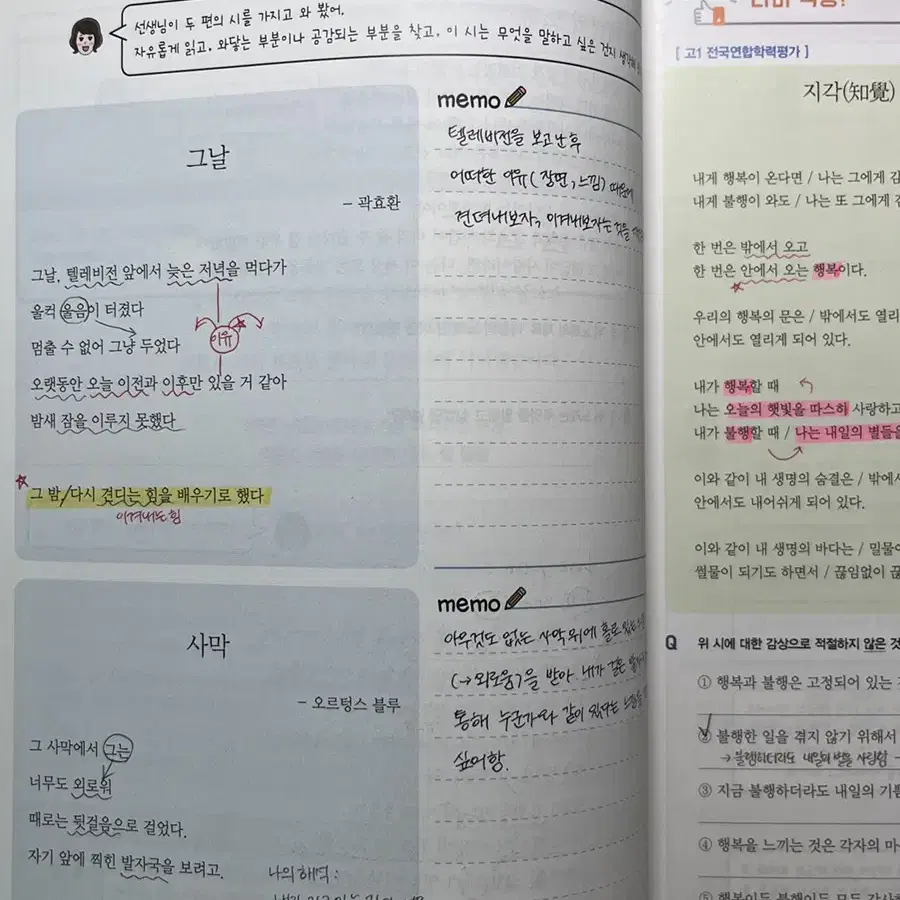 선생님이 두 편의 시를 가지고 와 봤어.
자유롭게 읽고, 와닿는 부분이나 공감되는 부분을 찾고, 이 시는 무엇을 말하고 싶은 건지 생각해
그날
- 곽효환
그날, 텔레비전 앞에서 늦은 저녁을 먹다가
울컥 울음이 터졌다
멈출 수 없어 그냥 두었다
이유
오랫동안 오늘 이전과 이후만 있을 거 같아
밤새 잠을 이루지 못했다
그 밤/다시 견디는 힘을 배우기로 했다
이겨내는 힘
memo
텔레비전을 보고난 후
어떠한 이유(장면, 느낌) 때문에
견뎌내보자, 이겨내보자는 것을
사막
- 오르텅스 블루
그 사막에서 그는
너무도 외로워
때로는 뒷걸음으로 걸었다.
자기 앞에 찍힌 발자국을 보려고.
나의 해석:
memo
아무것도 없는 사막 위에 홀로 있는
(→외로움)을 받아 내가 걸은
통해 누군가와 같이 있다는 느낌을
싶어함.
[ 고1 전국연합학력평가 ]
지각(知覺)
내게 행복이 온다면 / 나는 그에게
내게 불행이 와도 / 나는 또 그에게
한 번은 밖에서 오고
한 번은 안에서 오는 행복이다.
우리의 행복의 문은 / 밖에서도
안에서도 열리게 되어 있다.
내가 행복할 때
나는 오늘의 햇빛을 따스히 사랑하고
내가 불행할 때 / 나는 내일의 별들을
이와 같이 내 생명의 숨결은 /
안에서도 내어쉬게 되어 있다.
이와 같이 내 생명의 바다는 /
썰물이 되기도 하면서 / 끊임없이
Q 위 시에 대한 감상으로 적절하지 않은
① 행복과 불행은 고정되어 있는
② 불행한 일을 겪지 않기 위해서
→불행하더라도 내일의 별을 사랑함
③ 지금 불행하더라도 내일의
④ 행복을 느끼는 것은 각자의